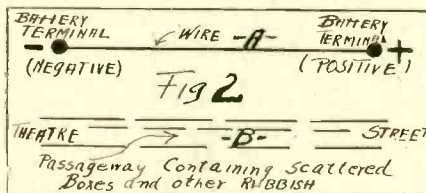 BATTERY TERMINAL
- (NEGATIVE)
WIRE -A-
BATTERY TERMINAL
+ (POSITIVE)
Fig 2
THEATRE -B- STREET
Passageway Containing Scattered
Boxes and other RUBBISH